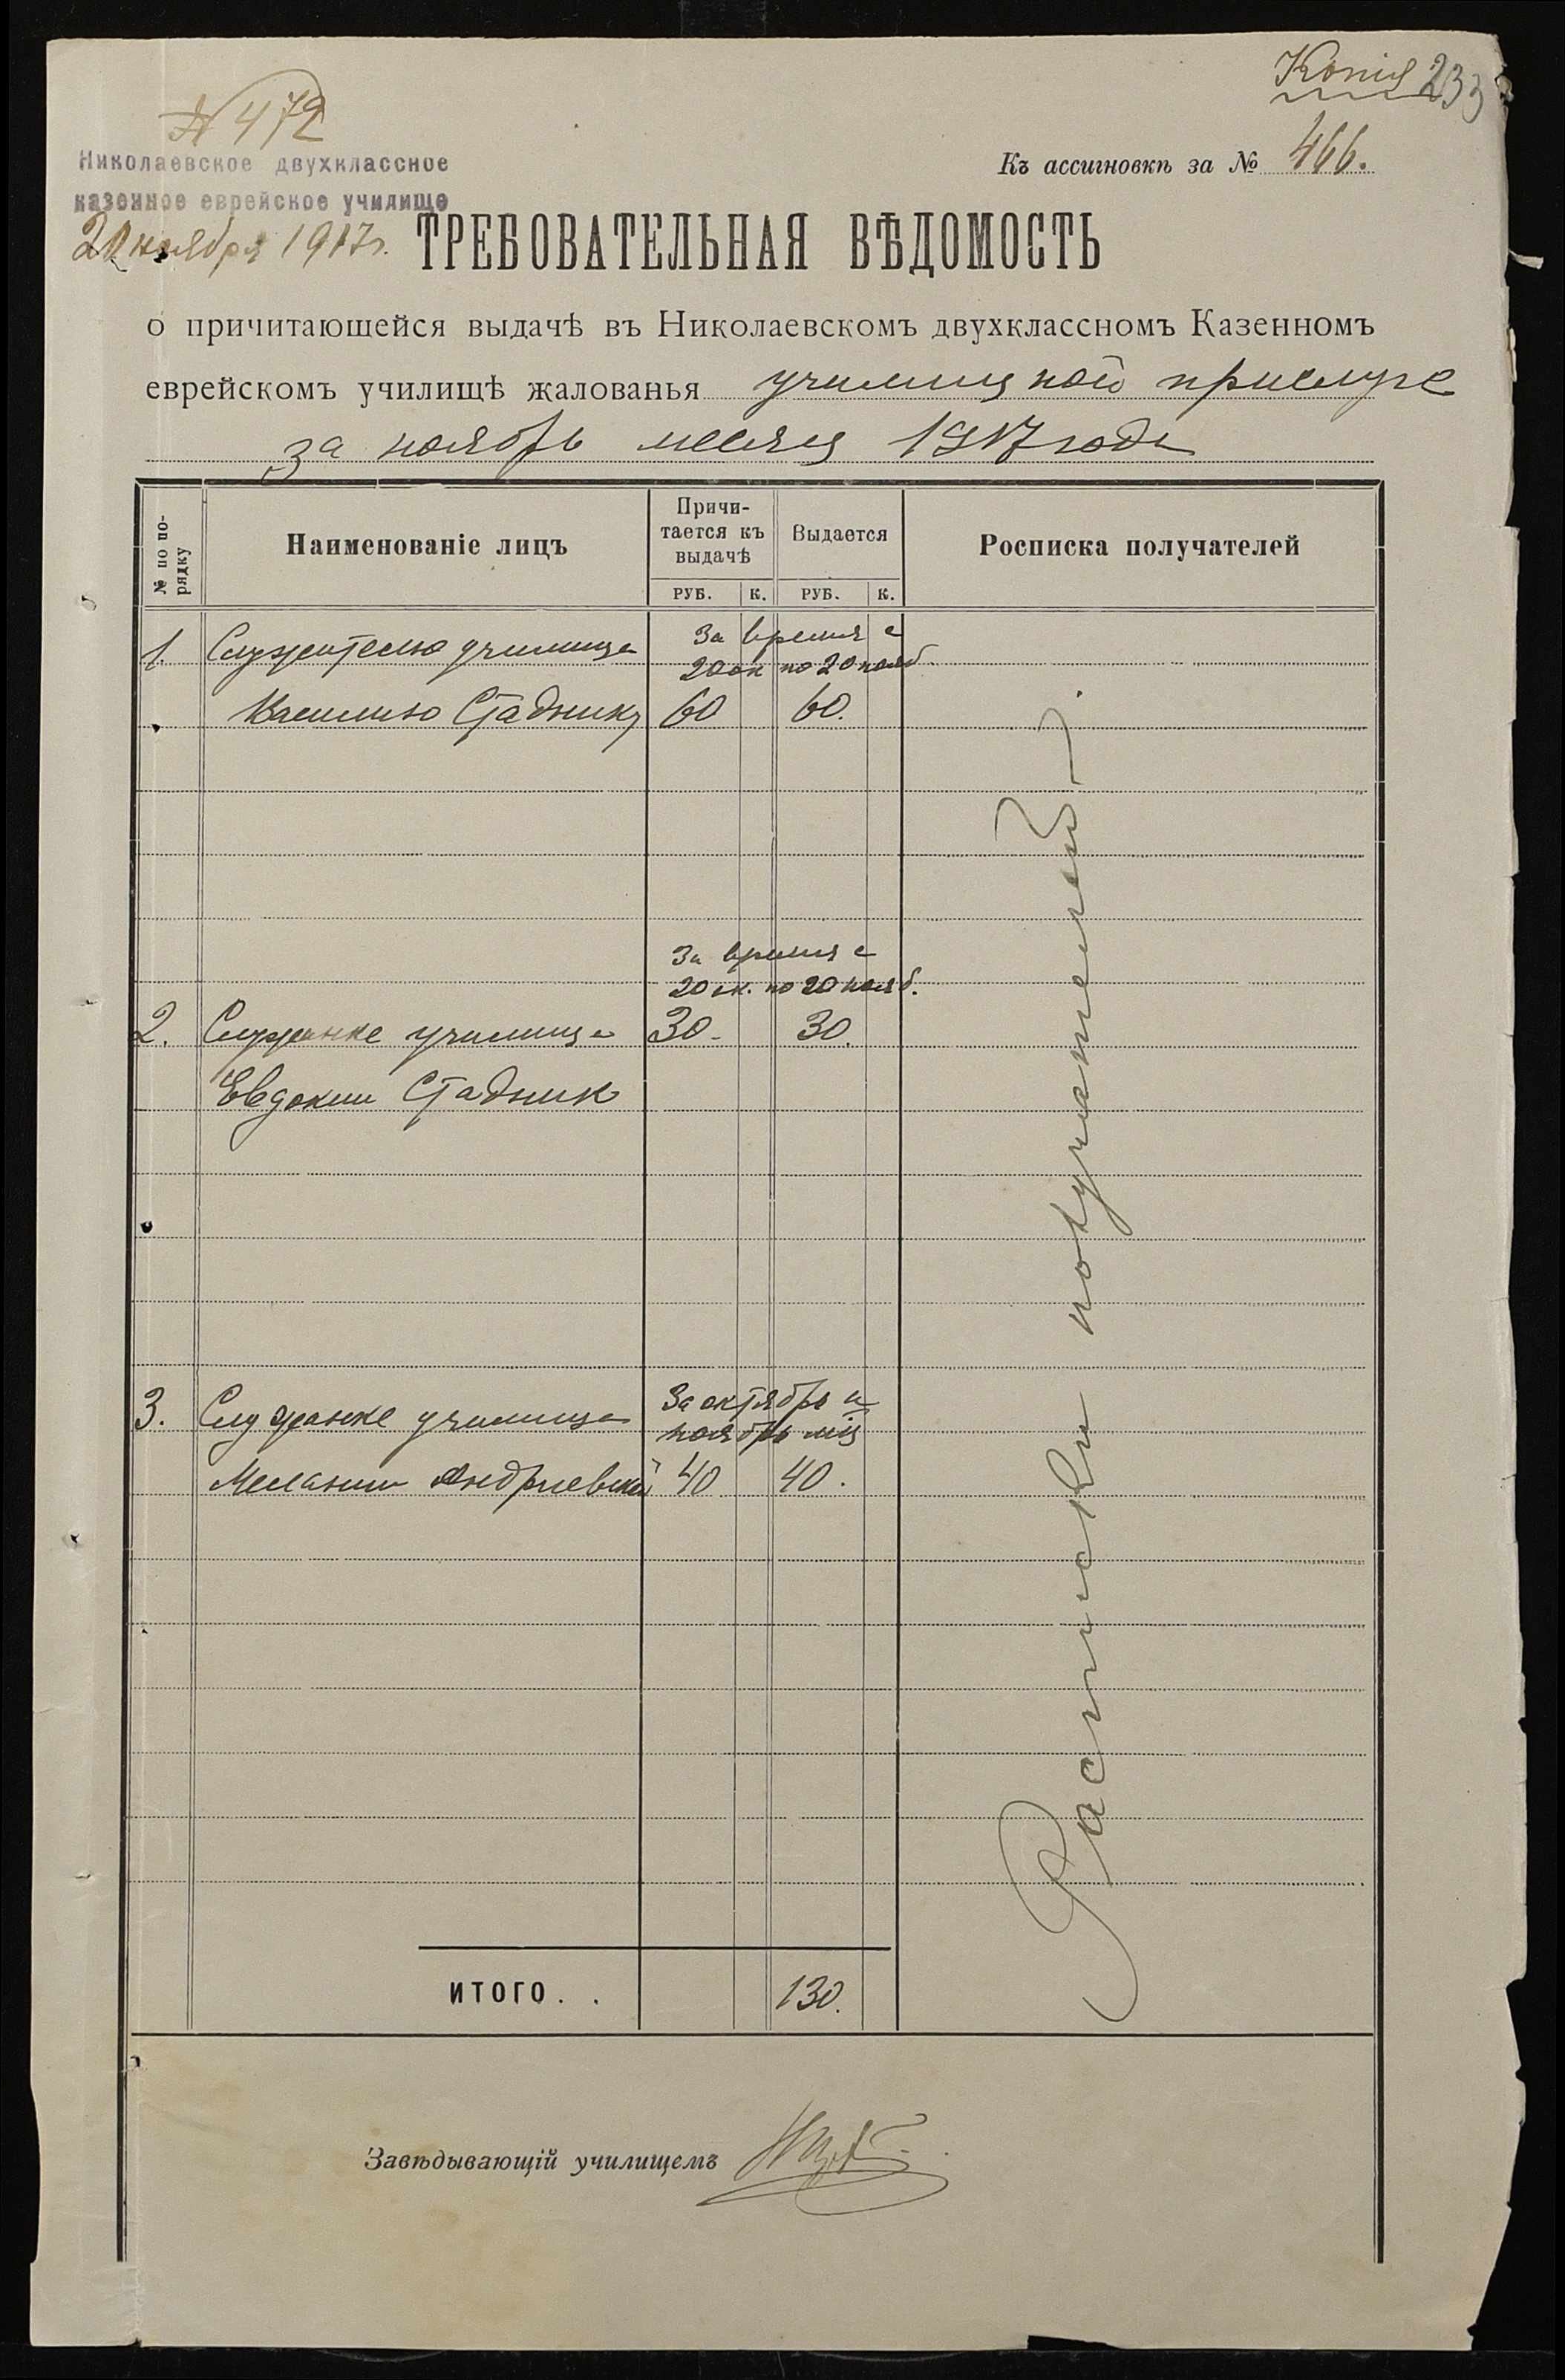 Копія 233
№ 472
Николаевское двухклассное
казенное еврейское училище
20 ноября 1917 г.
Къ ассигновкѣ за № 466.
ТРЕБОВАТЕЛЬНАЯ ВѢДОМОСТЬ
о причитающейся выдачѣ въ Николаевскомъ двухклассномъ Казенномъ
еврейскомъ училищѣ жалованья училищной прислуге
за ноябрь месяц 1917 года
№ по по-
рядку
Наименованіе лицъ
Причи-
тается къ
выдачѣ
Выдается
Росписка получателей
РУБ. К. РУБ. К.
За время с
20 ок по 20 нояб.
1. Служителю училища
Василию Стаднику 60 60.
За время с
20 ок. по 20 нояб.
2. Служанке училища 30. 30.
Евдокии Стадник
За октябрь и
ноябрь мц
3. Служанке училища
Мелании Андриевской 40 40.
Расписки получателей
ИТОГО. . 130.
Завѣдывающій училищемъ